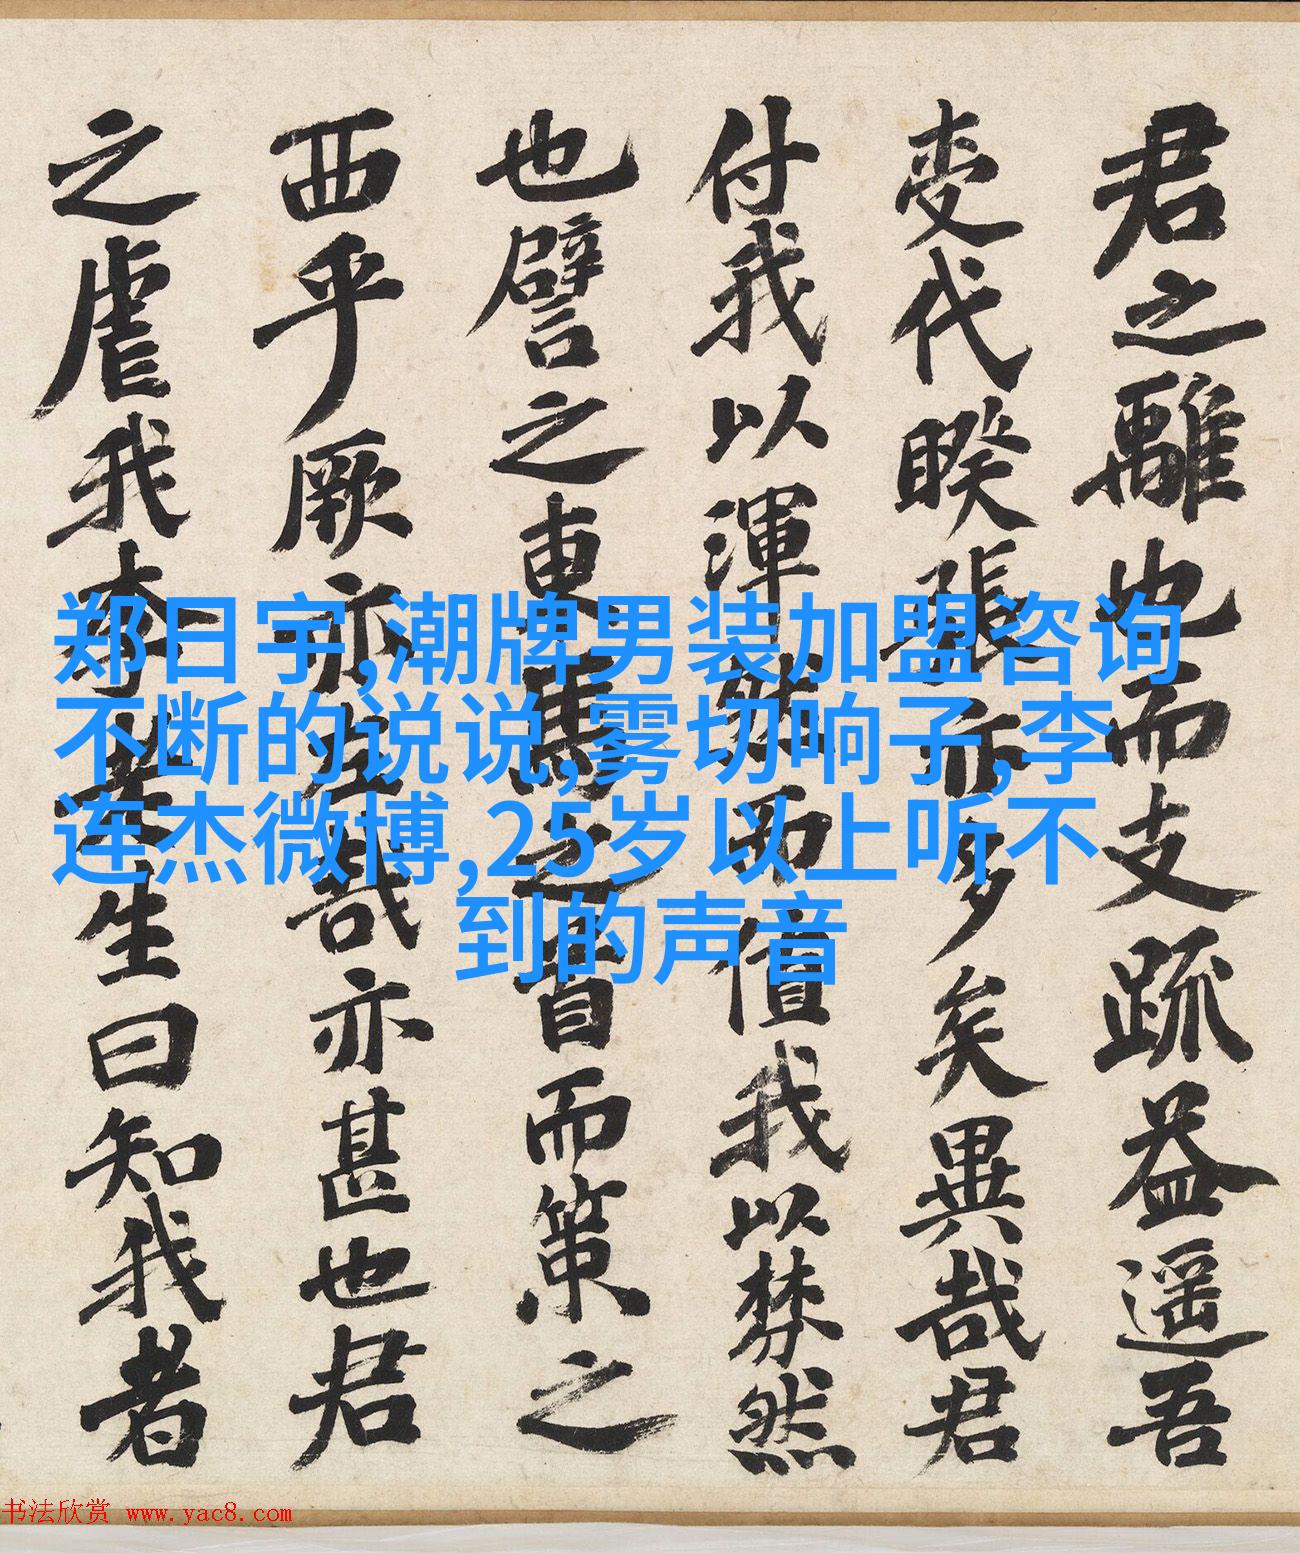 君之離也而支疏益遥吾
代睽張亦多矣異哉君
付我以渾然而值我以棼然
也譬之東馬之首而策之
西乎厥亦哉亦甚也君
之虐我李生曰知我者
郑日宇,潮牌男装加盟咨询
不断的说说,雾切响子,李
连杰微博,25岁以上听不
到的声音
书法欣赏 www.yac8.com